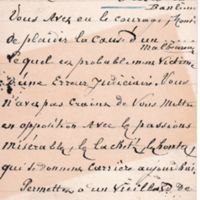 Banlieu
Vous avez eu le courage,
de plaidir la cause d'un
Malheureux
lequel en probablement Victime
d'une Erreur Judiciaire. Vous
n'avez pas crains de vous mettre
en opposition avec les passions
miserables, la lacheté, la honte,
qui se donnent carrière aujourd'hui.
Permettez à un Vieillard de